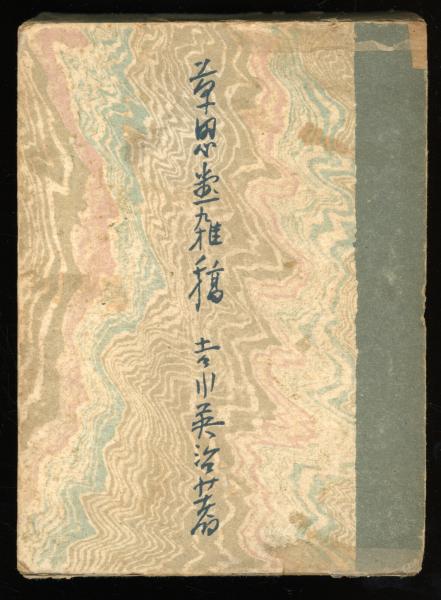 草思堂雑稿 吉川英治著